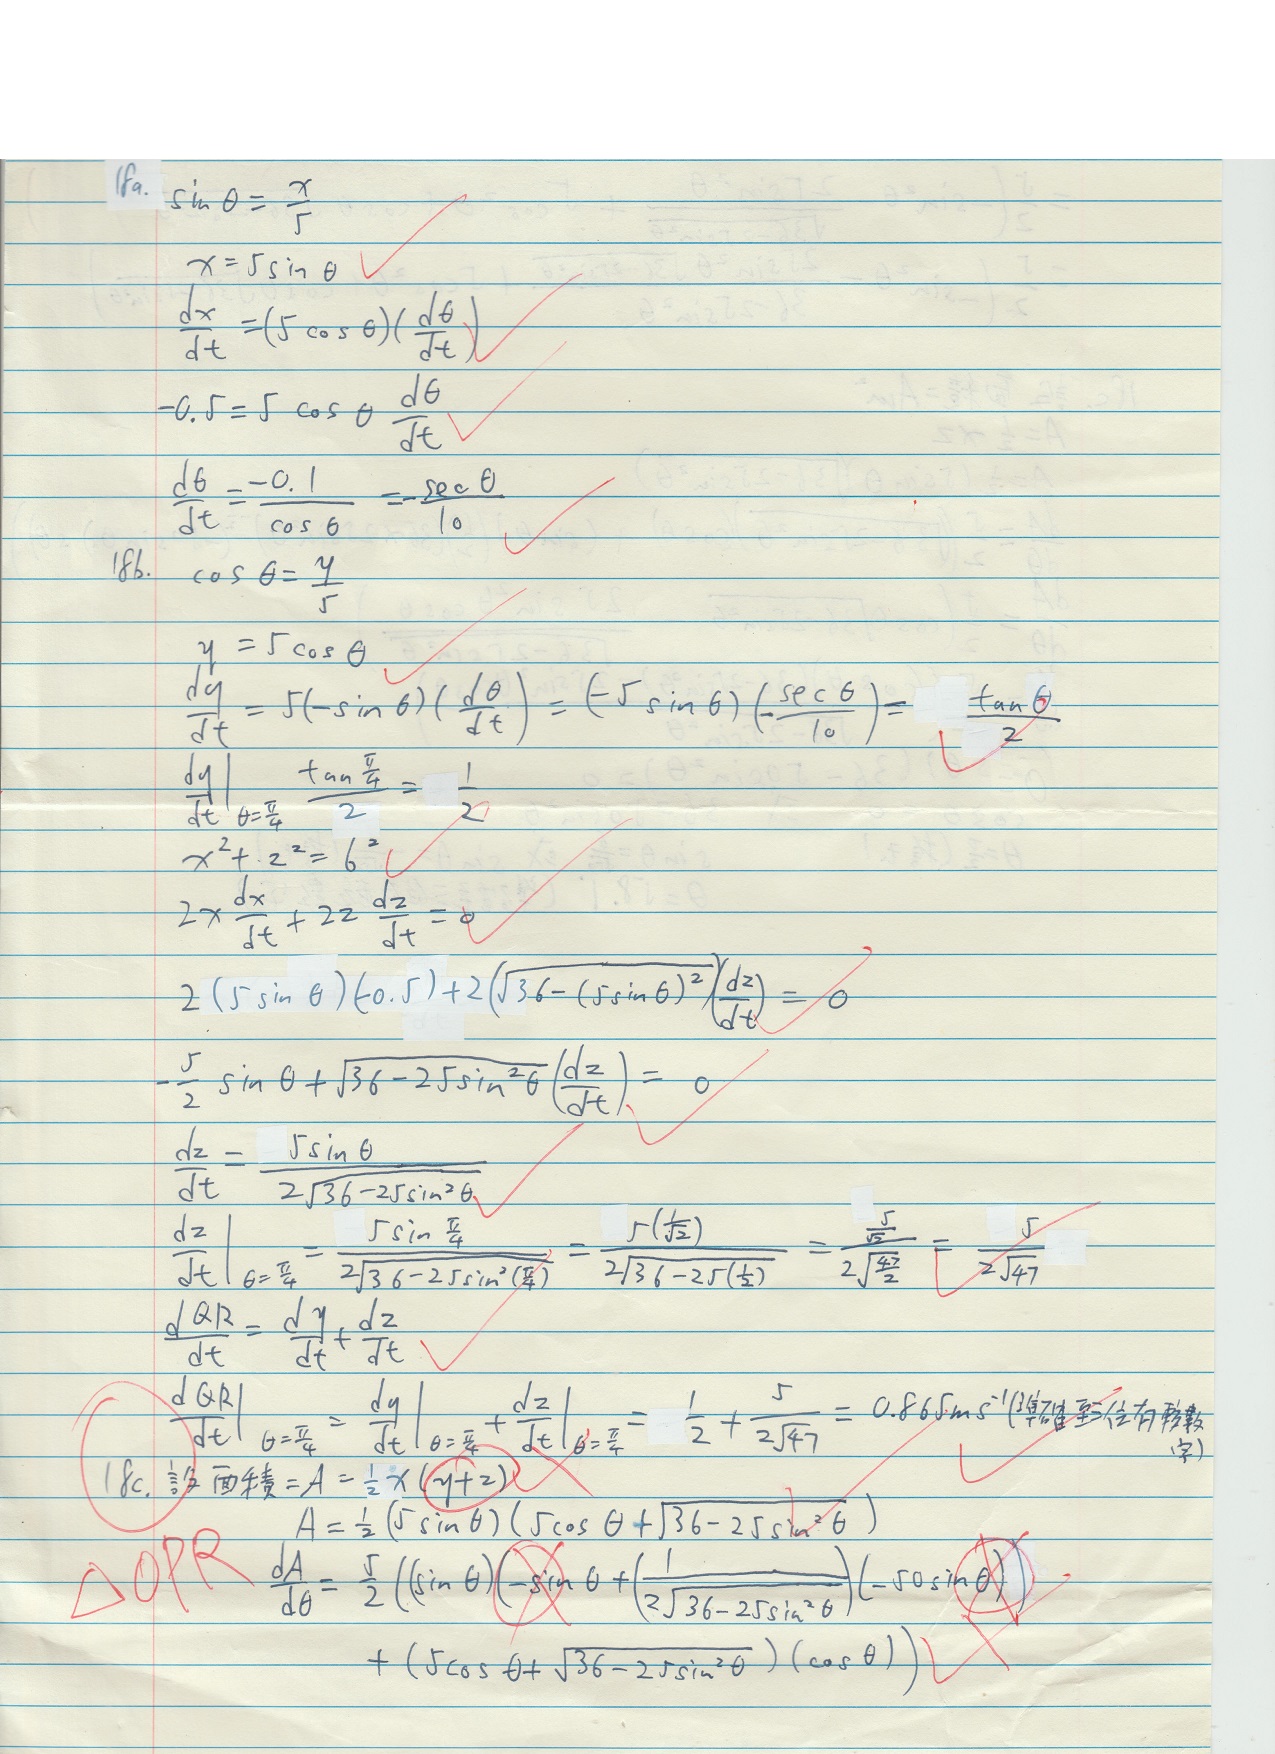 18a. sin θ = x/5
x = 5 sin θ
dx/dt = (5 cos θ)(dθ/dt)
-0.5 = 5 cos θ dθ/dt
dθ/dt = -0.1/cos θ = -sec θ/10
18b. cos θ = y/5
y = 5 cos θ
dy/dt = 5(-sin θ)(dθ/dt) = (-5 sin θ)(-sec θ/10) = tan θ/2
dy/dt|θ=π/4 tan π/4 / 2 = 1/2
x² + z² = 6²
2x dx/dt + 2z dz/dt = 0
2(5 sin θ)(-0.5) + 2(√36-(5 sin θ)²)(dz/dt) = 0
-5/2 sin θ + √36-25 sin²θ (dz/dt) = 0
dz/dt = 5 sin θ / 2√36-25 sin²θ
dz/dt|θ=π/4 = 5 sin π/4 / 2√36-25 sin²(π/4) = 5(1/√2) / 2√36-25(1/2) = 5/√2 / 2√47/2 = 5/2√47
dQR/dt = dy/dt + dz/dt
dQR/dt|θ=π/4 = dy/dt|θ=π/4 + dz/dt|θ=π/4 = 1/2 + 5/2√47 = 0.865 ms⁻¹ (準確至三位有效數字)
18c. 設面積 = A = 1/2 x(y+z)
A = 1/2 (5 sin θ)(5 cos θ + √36-25 sin²θ)
△OPR
dA/dθ = 5/2 ((sin θ)(-sin θ + (1/2√36-25 sin²θ)(-50 sin θ))
+ (5 cos θ + √36-25 sin²θ)(cos θ))